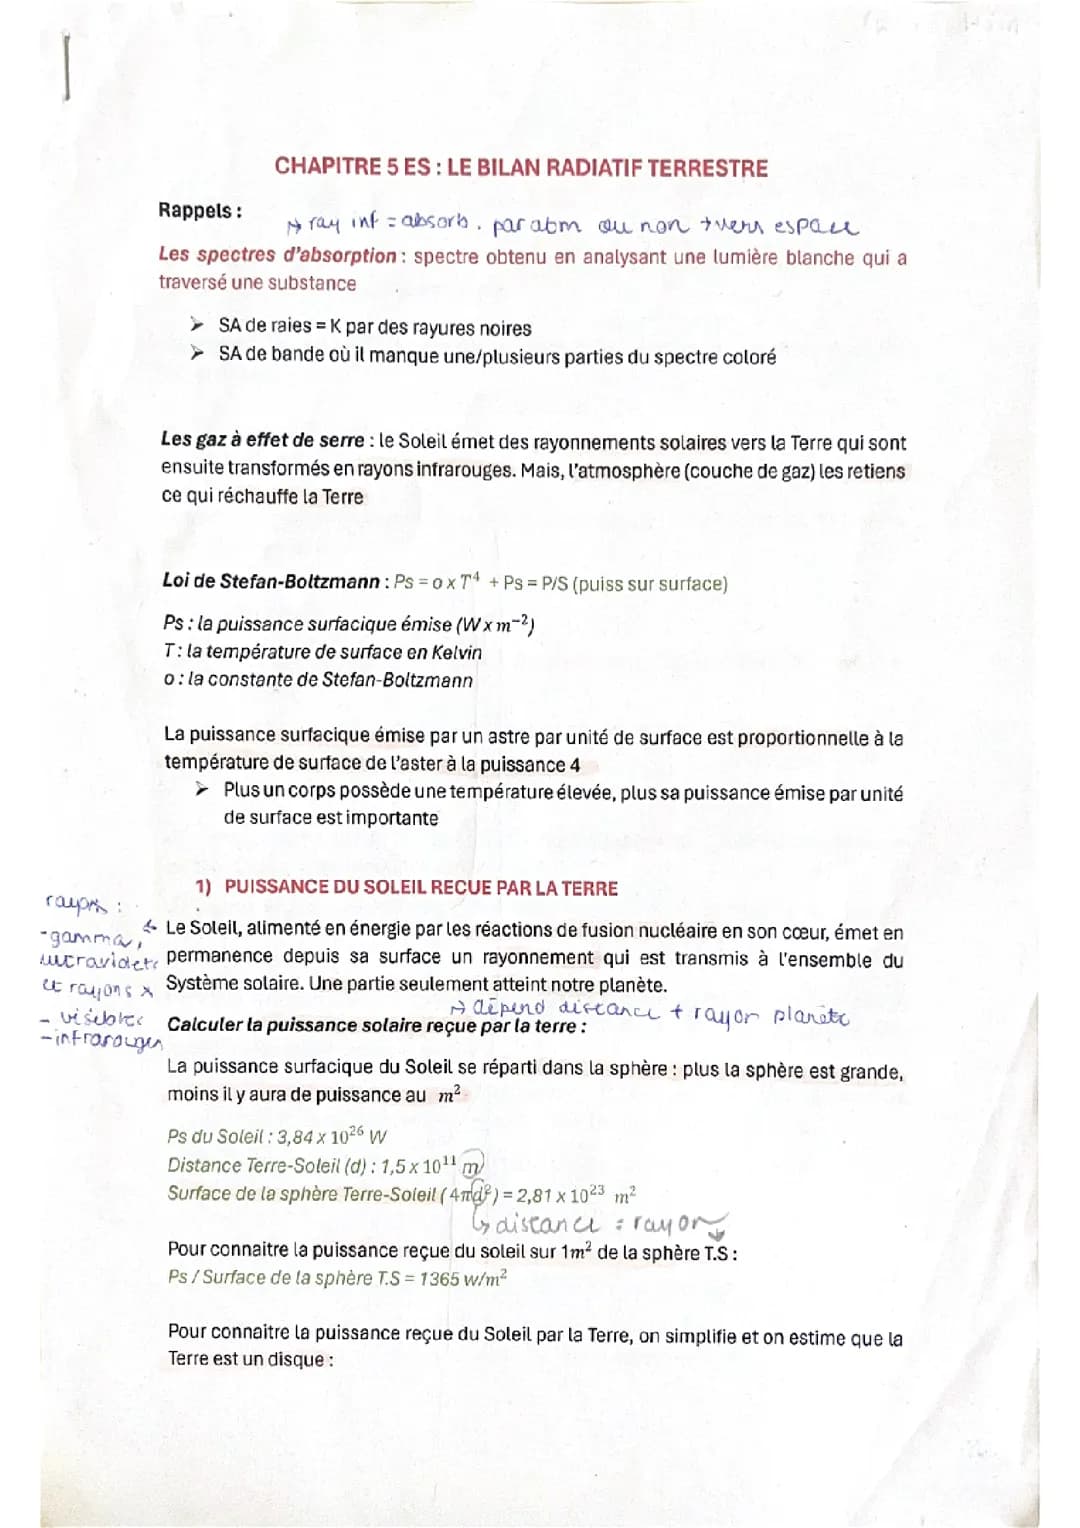 CHAPITRE 5 ES : LE BILAN RADIATIF TERRESTRE
Rappels :
→ ray inf = absorb. par atm ou non + vers espace
Les spectres d'absorption : spectre obtenu en analysant une lumière blanche qui a
traversé une substance
➤ SA de raies = K par des rayures noires
➤ SA de bande où il manque une/plusieurs parties du spectre coloré
Les gaz à effet de serre : le Soleil émet des rayonnements solaires vers la Terre qui sont
ensuite transformés en rayons infrarouges. Mais, l'atmosphère (couche de gaz) les retiens
ce qui réchauffe la Terre
Loi de Stefan-Boltzmann : Ps = o x T⁴ + Ps = P/S (puiss sur surface)
Ps : la puissance surfacique émise (W x m⁻²)
T : la température de surface en Kelvin
o : la constante de Stefan-Boltzmann
La puissance surfacique émise par un astre par unité de surface est proportionnelle à la
température de surface de l'aster à la puissance 4
➤ Plus un corps possède une température élevée, plus sa puissance émise par unité
de surface est importante
1) PUISSANCE DU SOLEIL RECUE PAR LA TERRE
rayons :
- gamma,
ultraviolets
et rayons x
- visibles
- infrarouges
Le Soleil, alimenté en énergie par les réactions de fusion nucléaire en son cœur, émet en
permanence depuis sa surface un rayonnement qui est transmis à l'ensemble du
Système solaire. Une partie seulement atteint notre planète.
→ dépend distance + rayon planète
Calculer la puissance solaire reçue par la terre :
La puissance surfacique du Soleil se réparti dans la sphère : plus la sphère est grande,
moins il y aura de puissance au m²
Ps du Soleil : 3,84 x 10²⁶ W
Distance Terre-Soleil (d) : 1,5 x 10¹¹ m
Surface de la sphère Terre-Soleil ( 4πd²) = 2,81 x 10²³ m²
↳ distance = rayon
Pour connaitre la puissance reçue du soleil sur 1m² de la sphère T.S :
Ps / Surface de la sphère T.S = 1365 w/m²
Pour connaitre la puissance reçue du Soleil par la Terre, on simplifie et on estime que la
Terre est un disque :